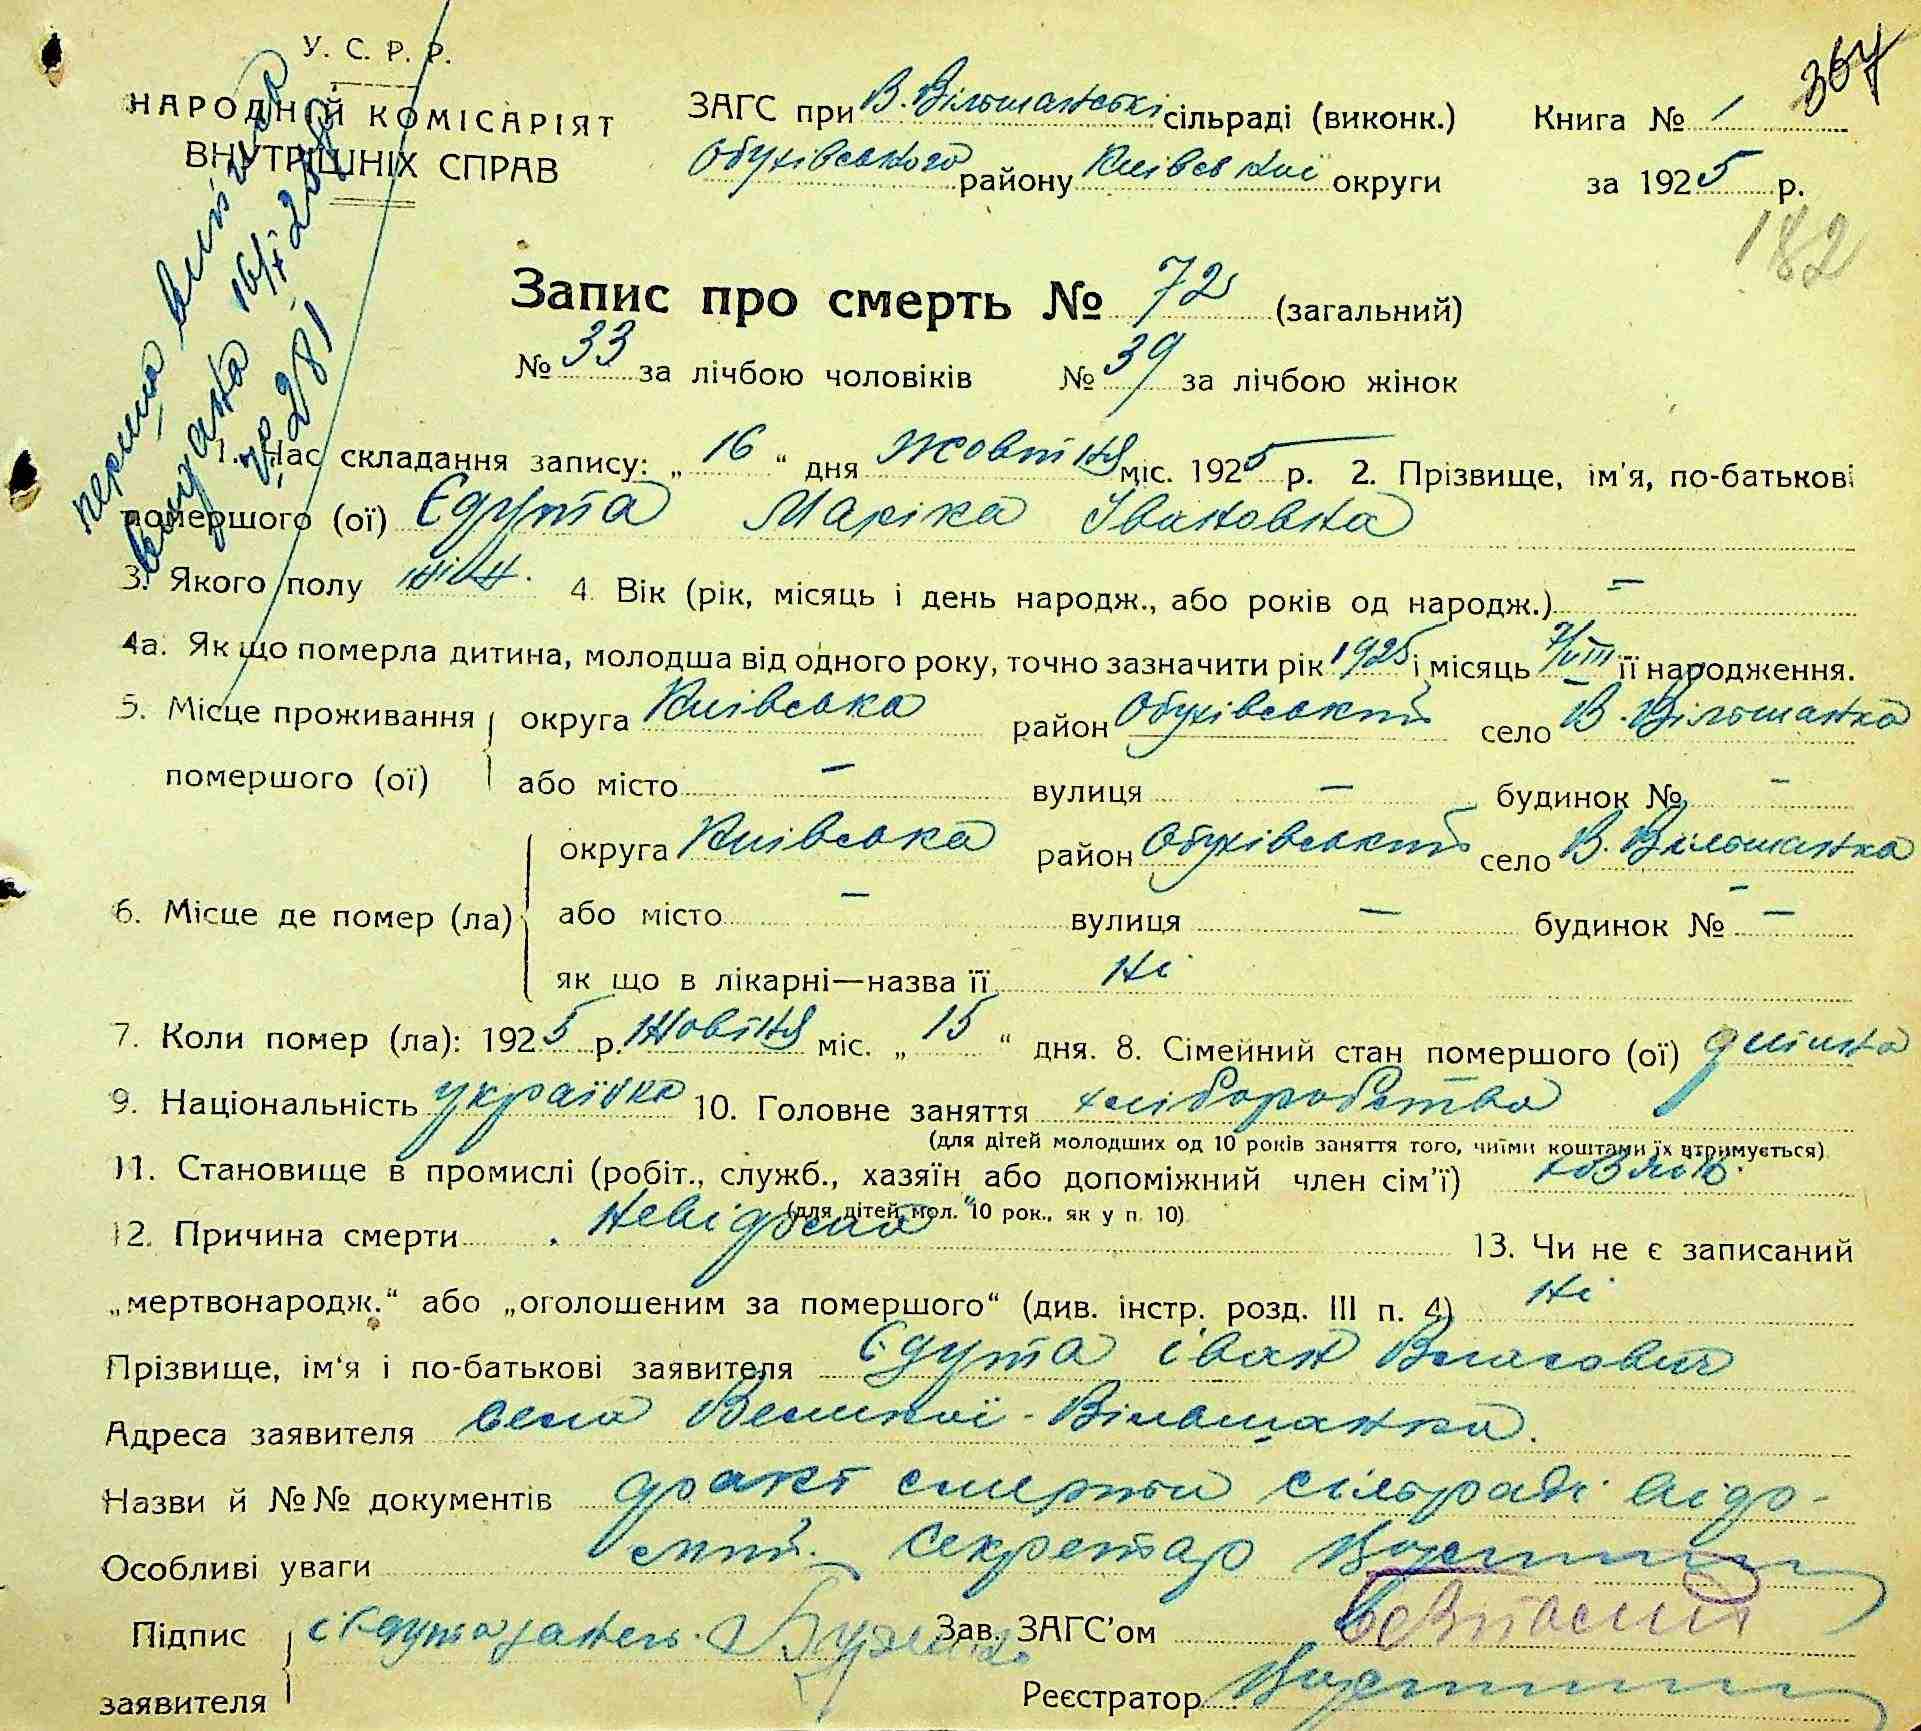 У. С. Р. Р.
НАРОДНІЙ КОМІСАРІЯТ
ВНУТРІШНІХ СПРАВ
ЗАГС при В. Вільшанські сільраді (виконк.)
Обухівського району Київської округи
Книга № 1
за 1925 р.
367
182
перша виписка
видана 16/X 25 р.
№ 281
Запис про смерть № 72 (загальний)
№ 33 за лічбою чоловіків № 39 за лічбою жінок
1. Час складання запису: „16“ дня жовтня міс. 1925 р. 2. Прізвище, ім'я, по-батькові
помершого (ої) Єдута Маріка Івановна
3. Якого полу жін. 4. Вік (рік, місяць і день народж., або років од народж.) –
4а. Як що померла дитина, молодша від одного року, точно зазначити рік 1925 і місяць 7/VIII її народження.
5. Місце проживання помершого (ої) округа Київська район Обухівський село В. Вільшанка
або місто – вулиця – будинок № –
6. Місце де помер (ла) округа Київська район Обухівський село В. Вільшанка
або місто – вулиця – будинок № –
як що в лікарні—назва її ні
7. Коли помер (ла): 1925 р. жовтня міс. „15“ дня. 8. Сімейний стан помершого (ої) дитина
9. Національність українка 10. Головне заняття хліборобство
(для дітей молодших од 10 років заняття того, чиїми коштами їх утримується).
11. Становище в промислі (робіт., служб., хазяїн або допоміжний член сім'ї) хозяїн
(для дітей мол. 10 рок., як у п. 10).
12. Причина смерти невідома 13. Чи не є записаний
„мертвонародж.“ або „оголошеним за помершого“ (див. інстр. розд. III п. 4) ні
Прізвище, ім'я і по-батькові заявителя Єдута Іван Власович
Адреса заявителя село Великої-Вільшанка.
Назви й №№ документів факт смерти сільраді відо-
Особливі уваги мий. Секретар
Підпис заявителя Єдута
Зав. ЗАГС'ом
Реєстратор